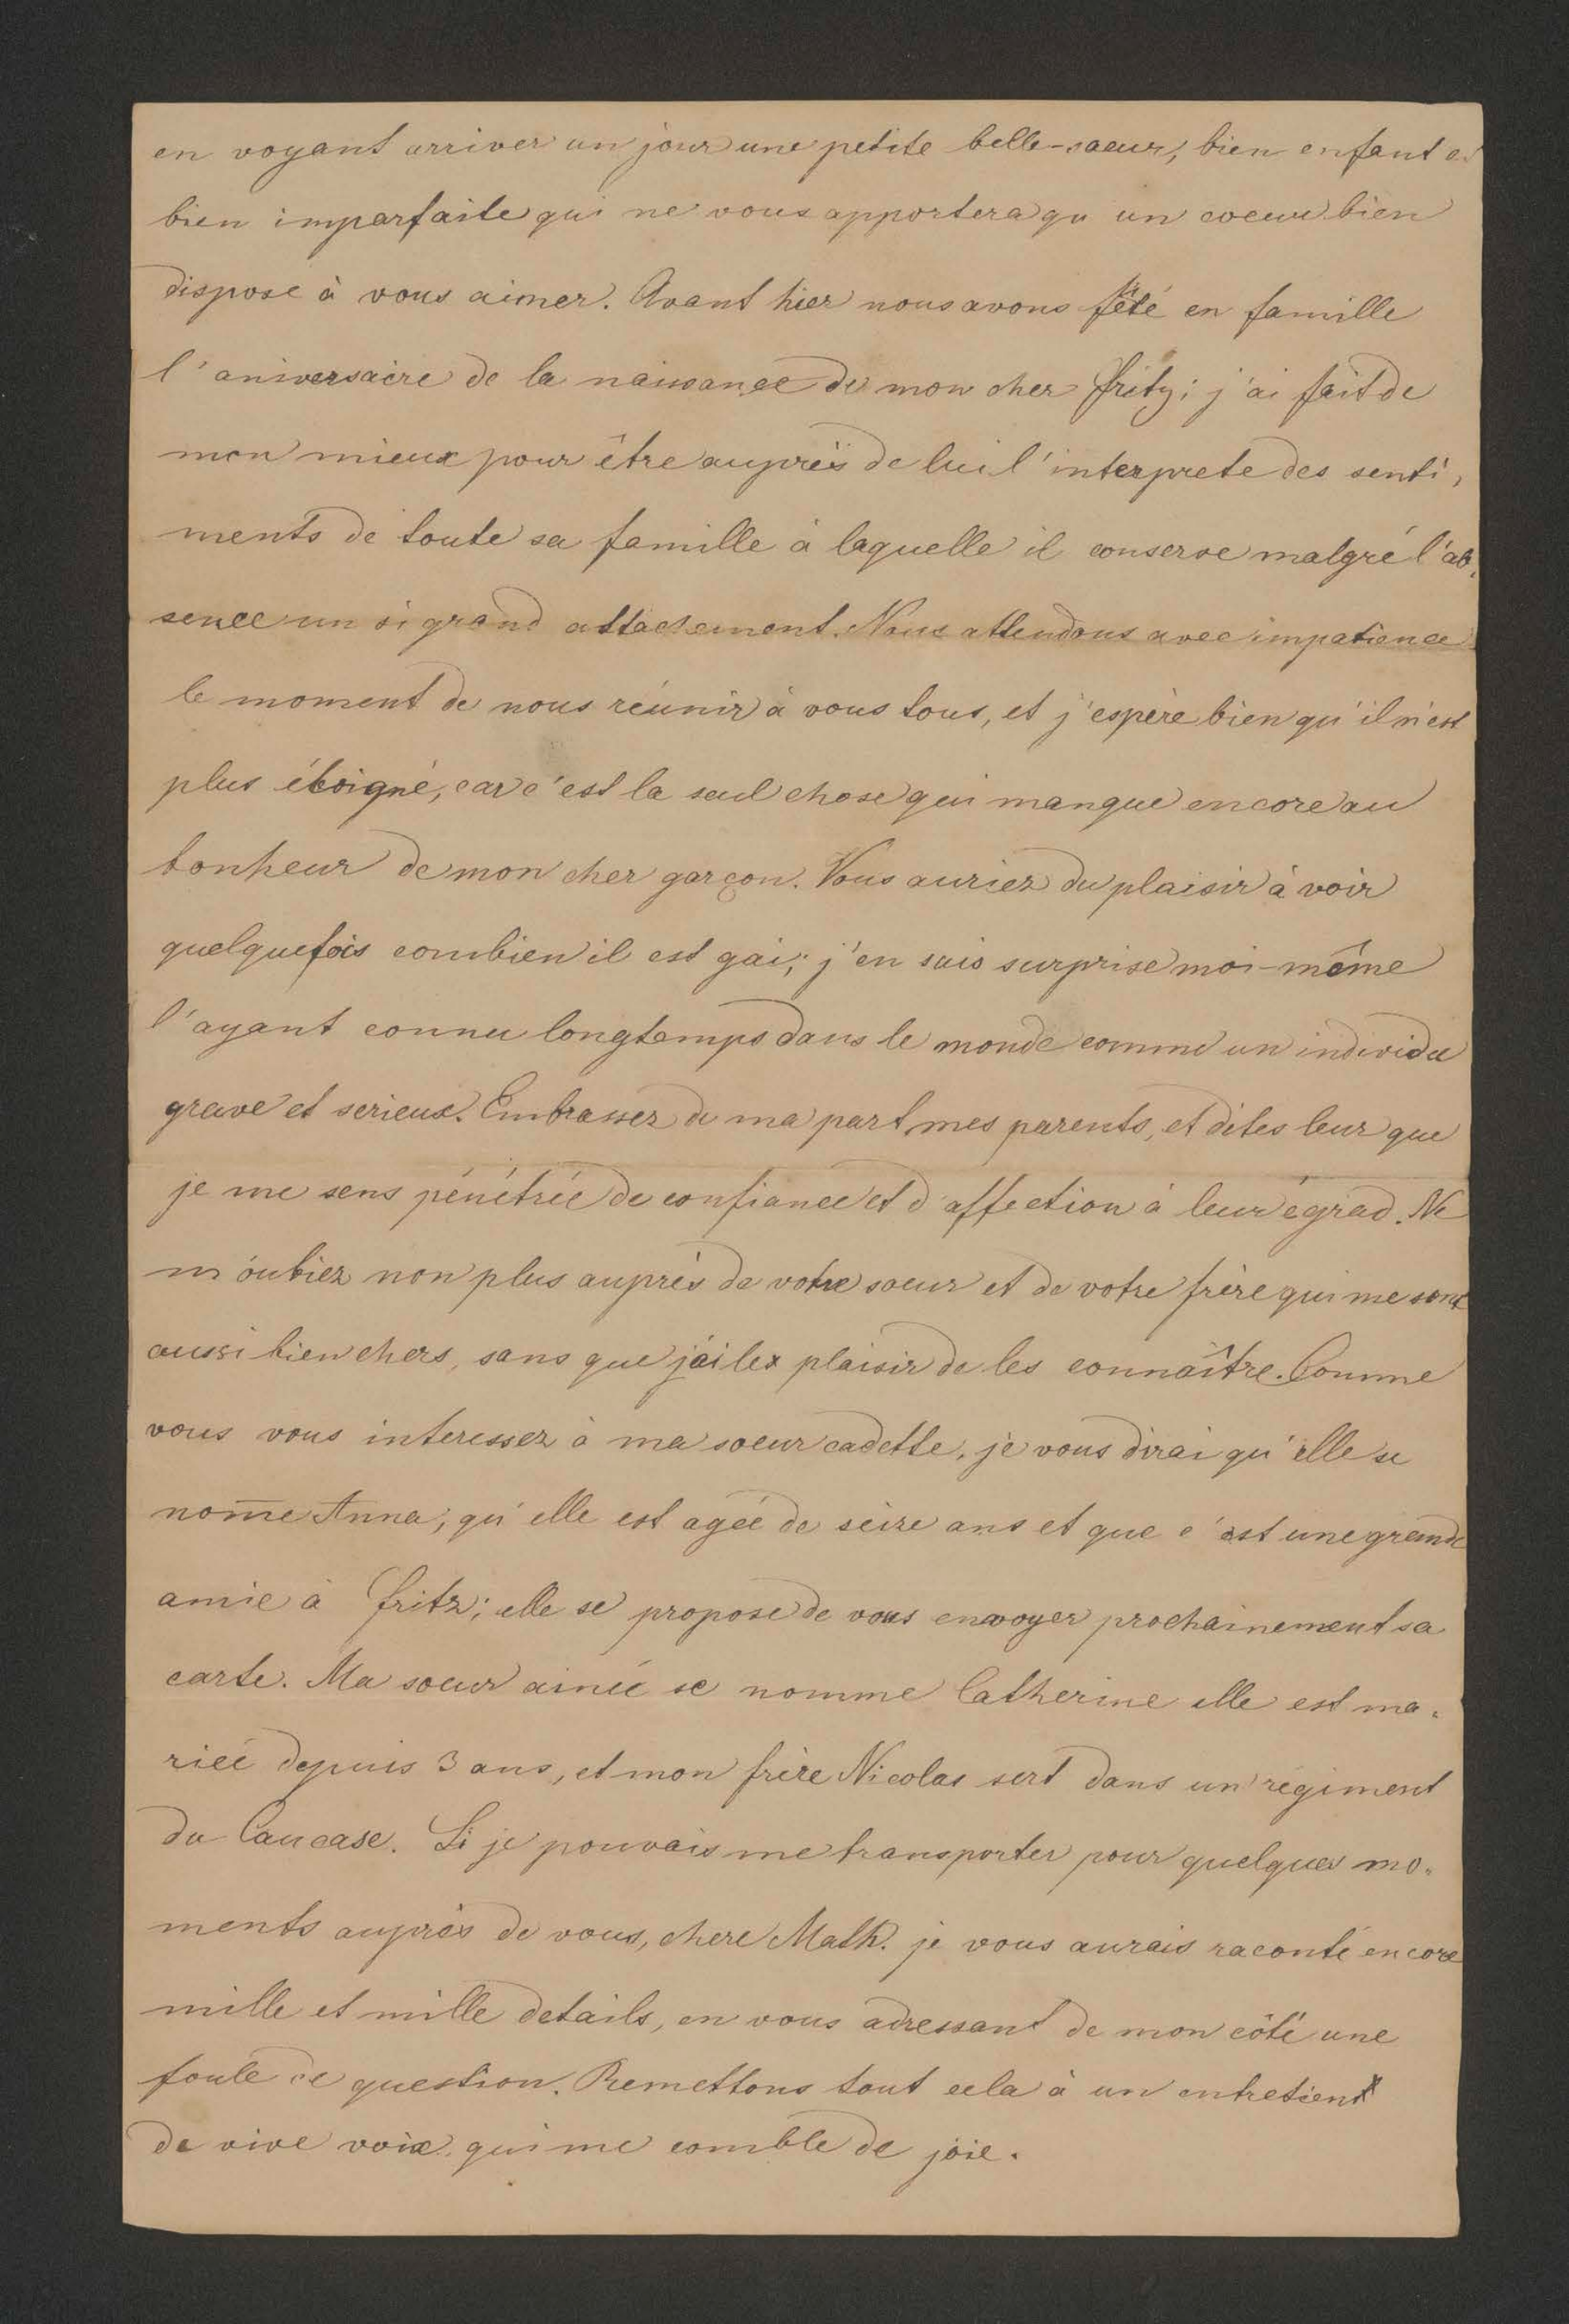 en voyant arriver un jour une petite belle-saeur, bien enfant et
bien imparfaite qui ne vous apportera qu un coeur bien
dispose à vous aimer. Avant hier nous avons fêté en famille
l'aniversaire de la naissance de mon cher Fritz; j'ai fait de
mon mieux pour être auprès de lui l'interprete des senti,
ments de toute sa famille à laquelle il conserve malgré l'ab,
sence un si grand attachement. Nous attendons avec impatience
le moment de nous réunir à vous tous, et j'espère bien qu'il n'est
plus éloigné, car c'est la seul chose qui manque encore au
bonheur de mon cher garçon. Vous auriez du plaisir à voir
quelquefois combien il est gai; j'en suis surprise moi-même
l'ayant connu longtemps dans le monde comme un individu
grave et serieux. Embrassez de ma part mes parents, et dites leur que
je me sens pénétrée de confiance et d'affection à leur égrad. Ne
m'oubiez non plus auprès de votre soeur et de votre frère qui me sont
aussi bien chers, sans que j'ai les plaisir de les connaître. Comme
vous vous interessez à ma soeur cadette, je vous dirai qu'elle se
nom̅e Anna, qu'elle est agée de seize ans et que c'est une grande
amie à Fritz; elle se propose de vous envoyer prochainement sa
carte. Ma soeur ainée se nomme Catherine elle est ma-
riée depuis 3 ans, et mon frère Nicolas sert dans un régiment
du Caucase. Si je pouvais me transporter pour quelques mo-
ments auprès de vous, chere Math. je vous aurais raconté encore
mille et mille details, en vous adressant de mon côté une
foule de question. Remettons tout cela à un entretient
de vive voix, qui me comble de joie.